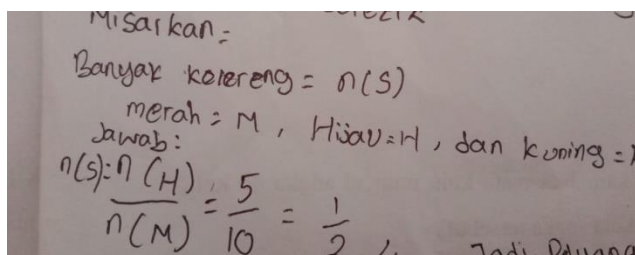 Misalkan =
Banyak kelereng = n(S)
merah = M, Hijau = H, dan kuning =
Jawab :
n(S) = n(H) / n(M) = 5/10 = 1/2
Jadi Peluang